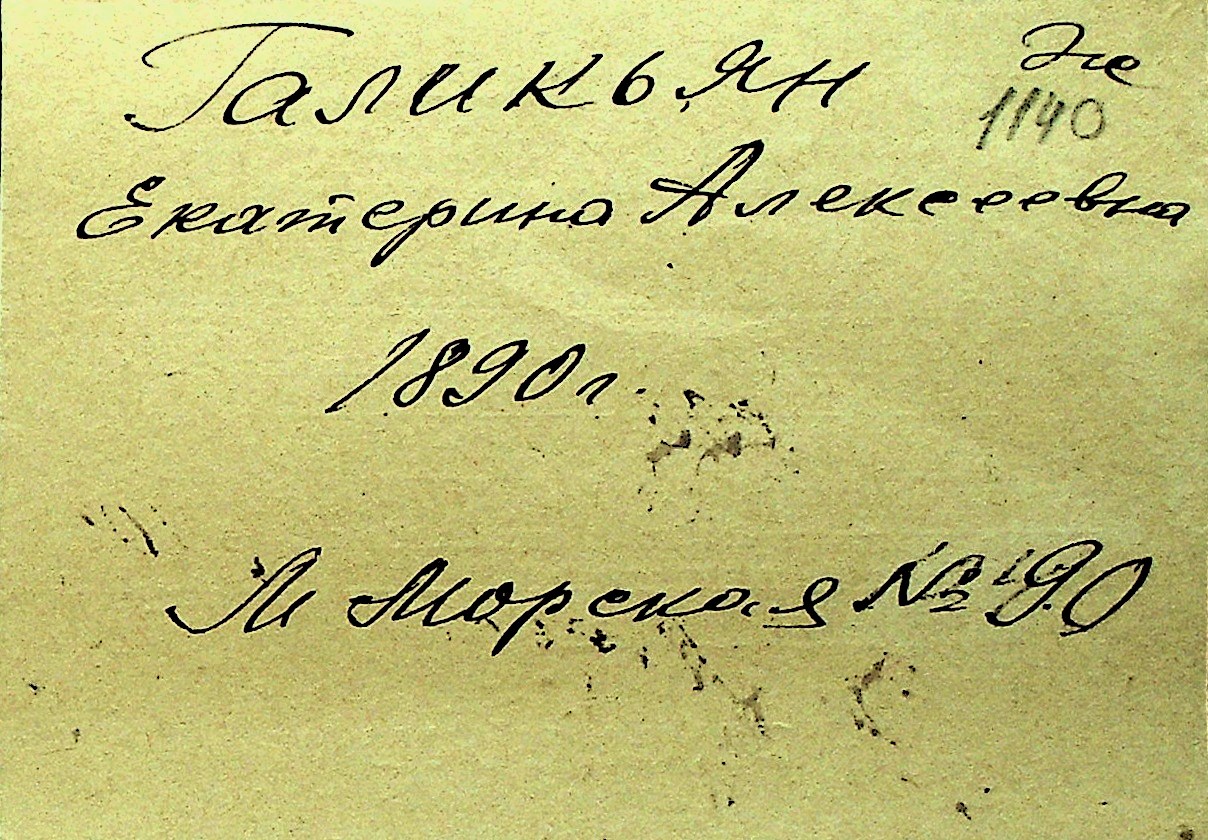 Галикьян
1140
Екатерина Алексеевна
1890 г.
Морская № 90